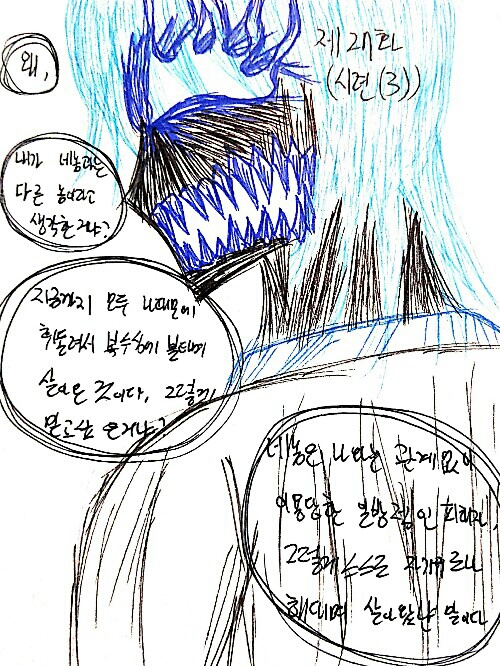 제 22화
(시련 (3))
왜,
내가 네놈과는
다른 놈이라고
생각한 거냐?
지금까지 모두 나때문에
휘둘려서 복수심에 불타며
살아온 것이다, 그렇게
믿고 산 거냐?
네놈은 나와는 관계없이
이용당한 일방적인 희생자
그렇게 스스로
해대며 살아왔단 말이다